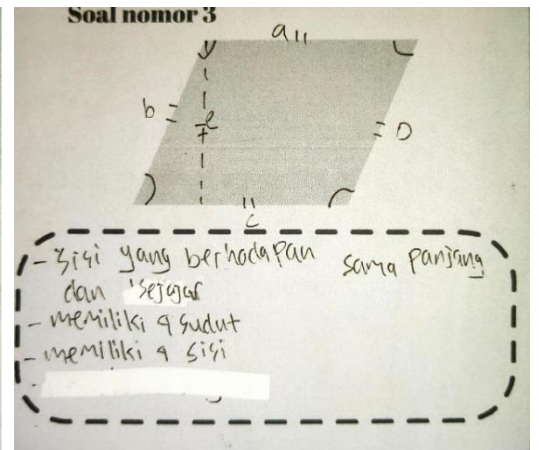 Soal nomor 3
a
b
e
D
c
- sisi yang berhadapan sama panjang
dan sejajar
- memiliki 4 sudut
- memiliki 4 sisi
-